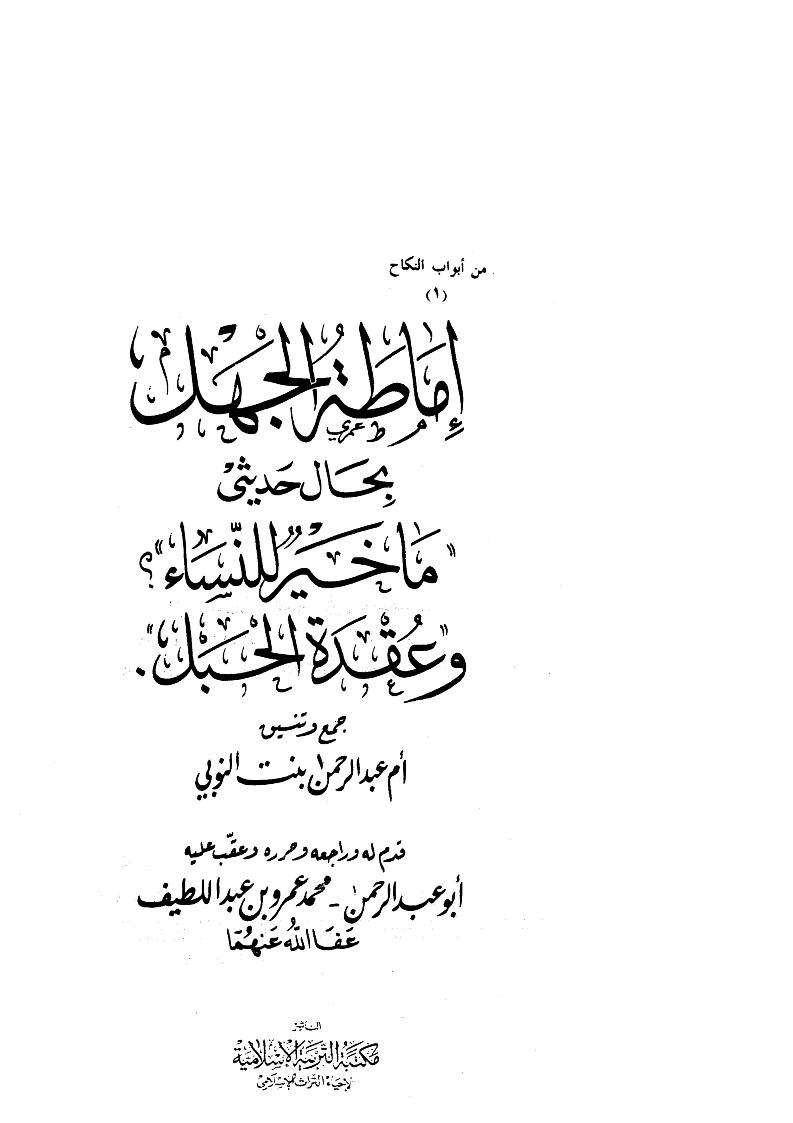 من أبواب النكاح
(١)
إِمَاطَةُ الجَهْل
بِحَال حَديثيْ
"مَا خَيْرٌ للنِّسَاء"؟
و"عُقْدَة الحَبْل".
جمع وتنسيق
أم عبد الرحمن بنت النوبي
قدم له وراجعه وحرره وعقّب عليه
أبو عبد الرحمن - محمد عمرو بن عبد اللطيف
عَفَا اللهُ عَنهُمَا
الناشر
مكتبة التربية الإسلامية
لإحياء التراث الإسلامي